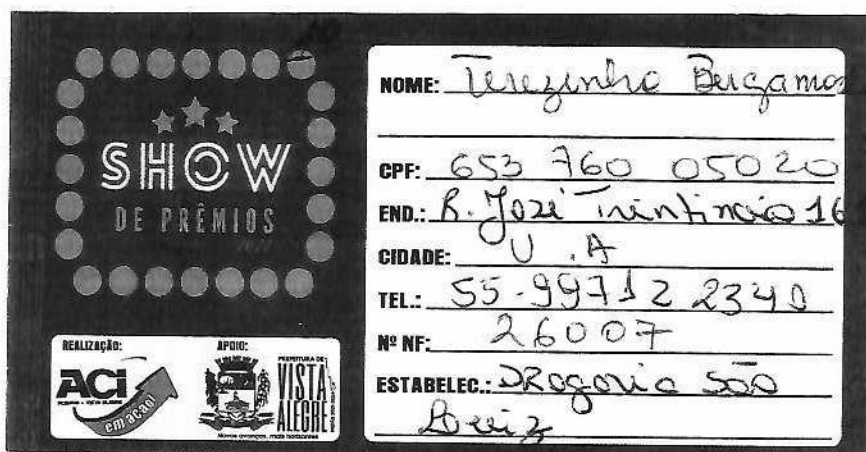 SHOW
DE PRÊMIOS
REALIZAÇÃO:
ACI
em ação!
APOIO:
PREFEITURA DE
VISTA
ALEGRE
Novos avanços, mais horizontes
NOME: Terezinha Bergamos
CPF: 653 760 05020
END.: R. José 16
CIDADE: V.A
TEL.: 55-99712 2340
Nº NF: 26007
ESTABELEC.: DRogaria São
Luiz